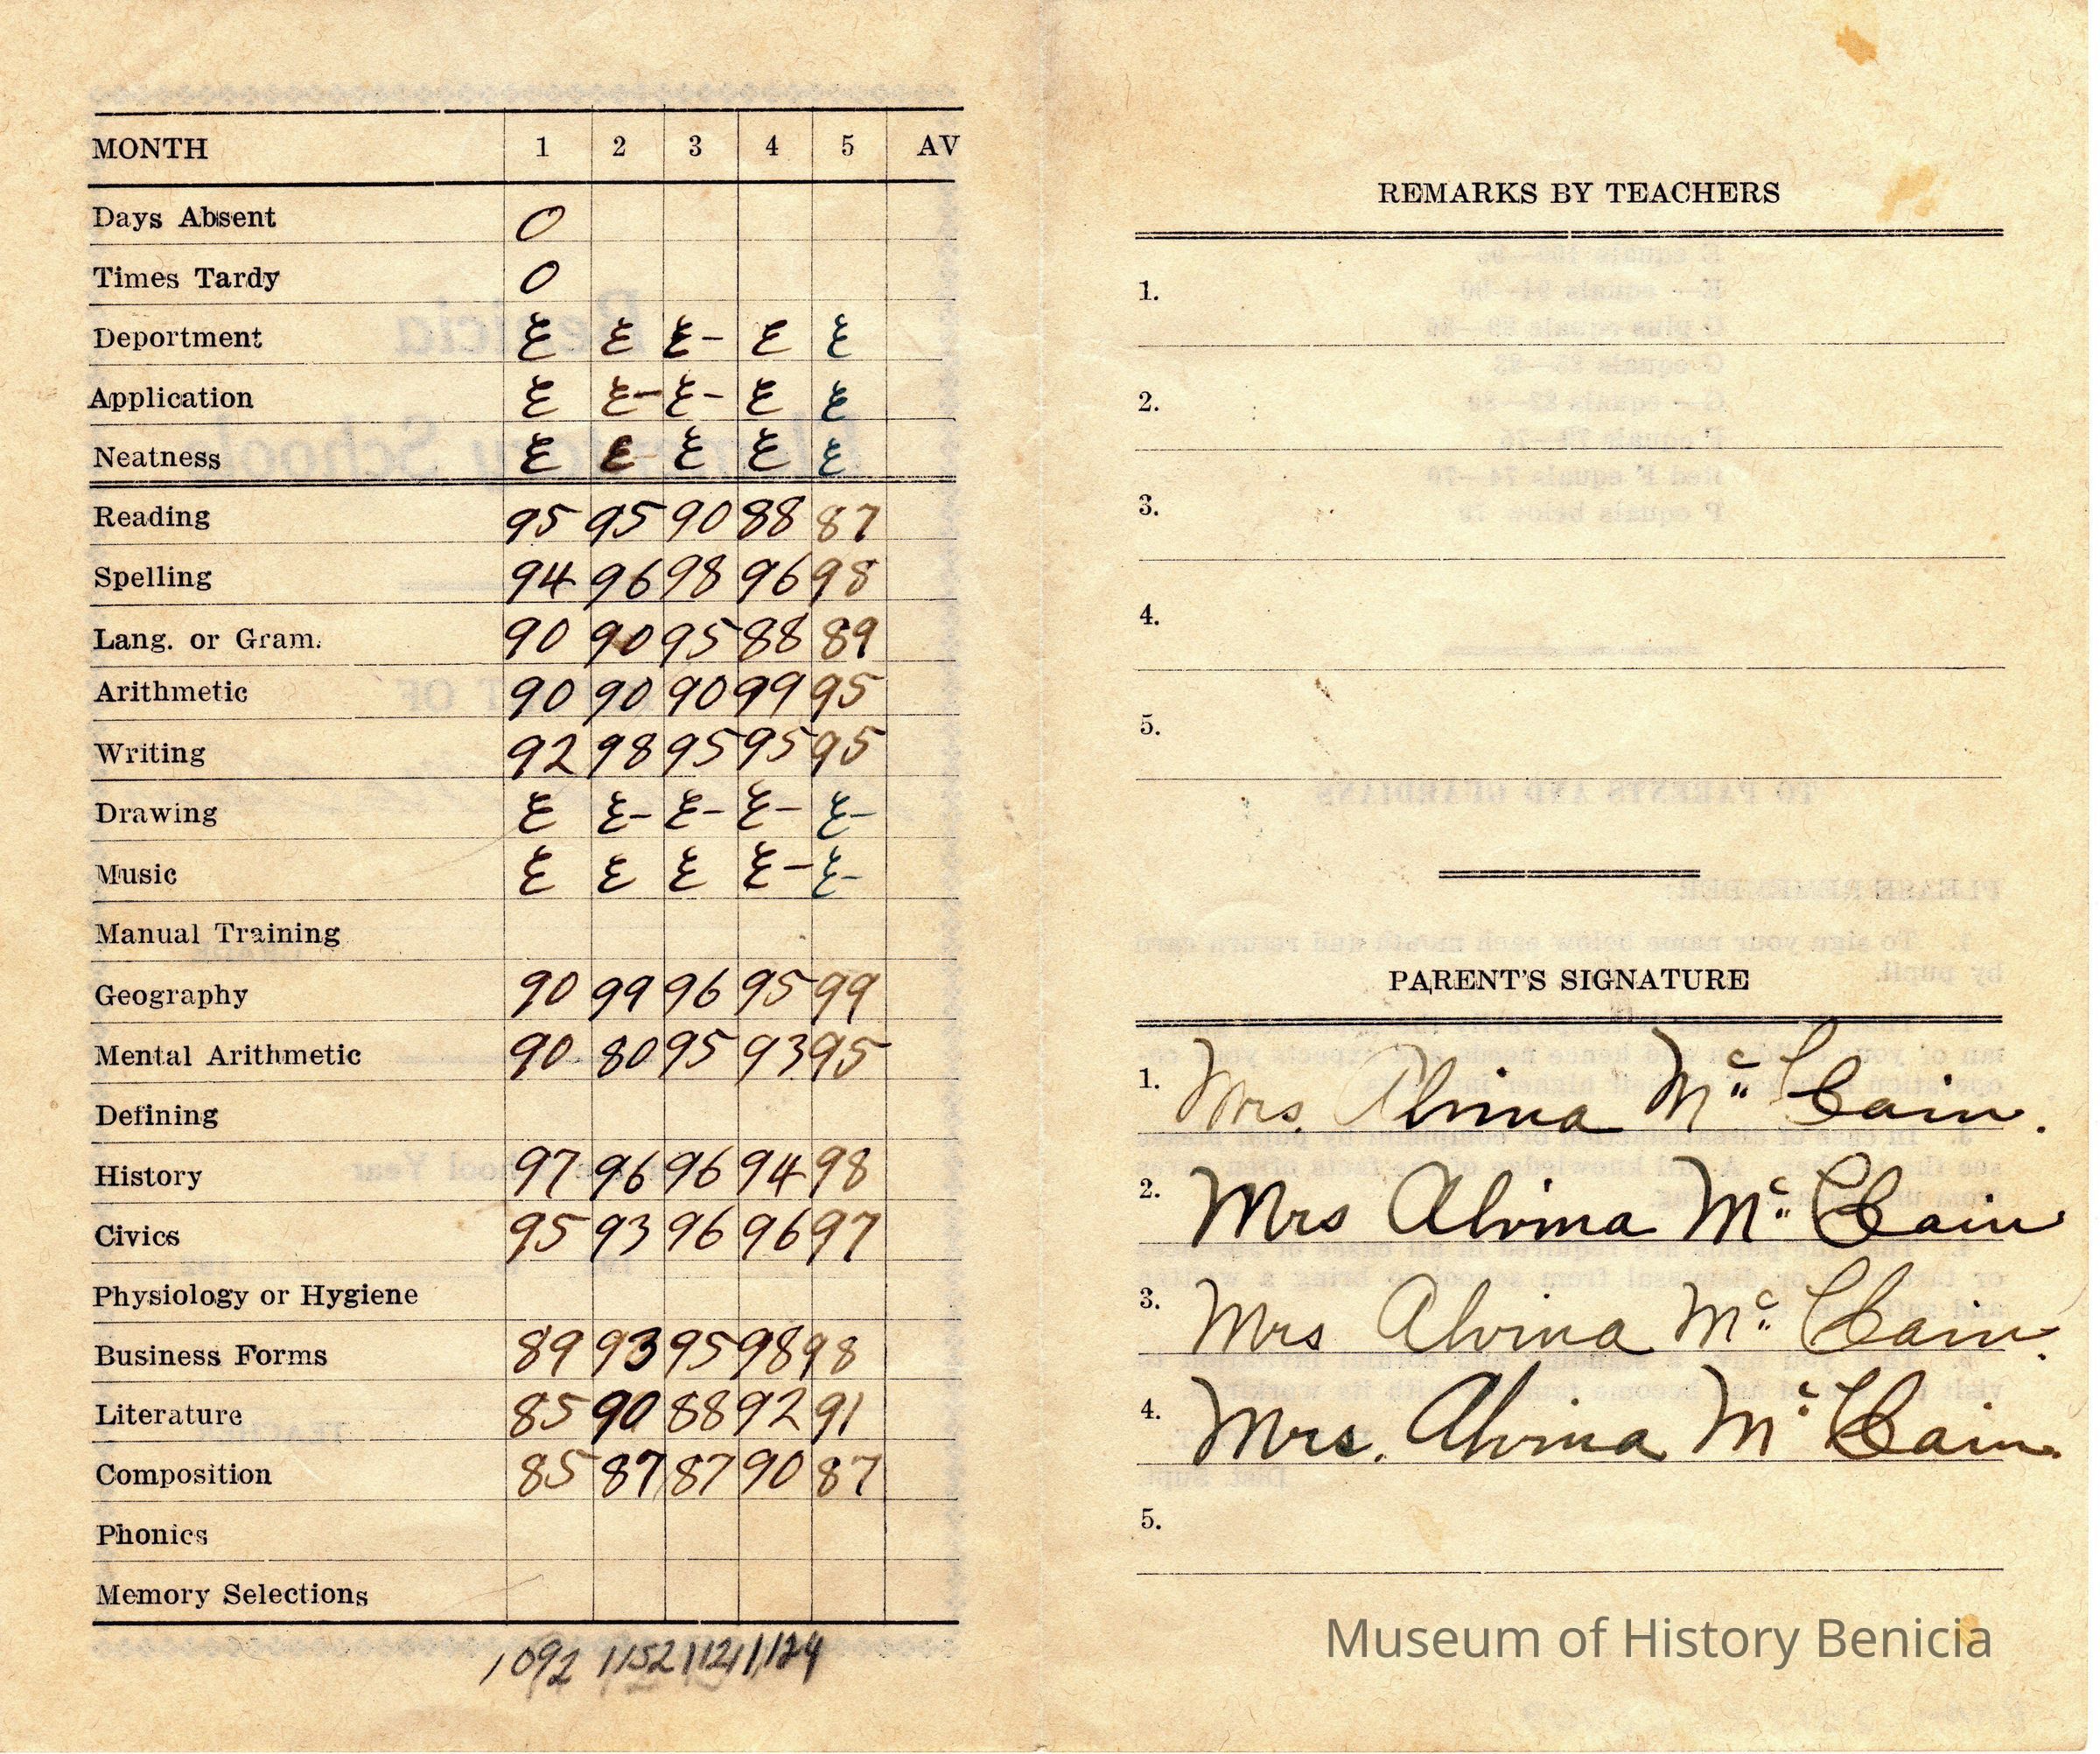 MONTH 1 2 3 4 5 AV
Days Absent 0
Times Tardy 0
Deportment E E E- E E
Application E E- E- E E
Neatness E E E E E
Reading 95 95 90 88 87
Spelling 94 96 98 96 98
Lang. or Gram. 90 90 95 88 89
Arithmetic 90 90 90 99 95
Writing 92 98 95 95 95
Drawing E E- E- E- E-
Music E E E E- E-
Manual Training
Geography 90 99 96 95 99
Mental Arithmetic 90 80 95 93 95
Defining
History 97 96 96 94 98
Civics 95 93 96 96 97
Physiology or Hygiene
Business Forms 89 93 95 98 98
Literature 85 90 88 92 91
Composition 85 87 87 90 87
Phonics
Memory Selections
1092 1152 1121 1124
REMARKS BY TEACHERS
1.
2.
3.
4.
5.
PARENT'S SIGNATURE
1. Mrs. Alvina Mc Clain.
2. Mrs Alvina Mc Clain
3. Mrs Alvina Mc Clain.
4. Mrs. Alvina Mc Clain.
5.
Museum of History Benicia